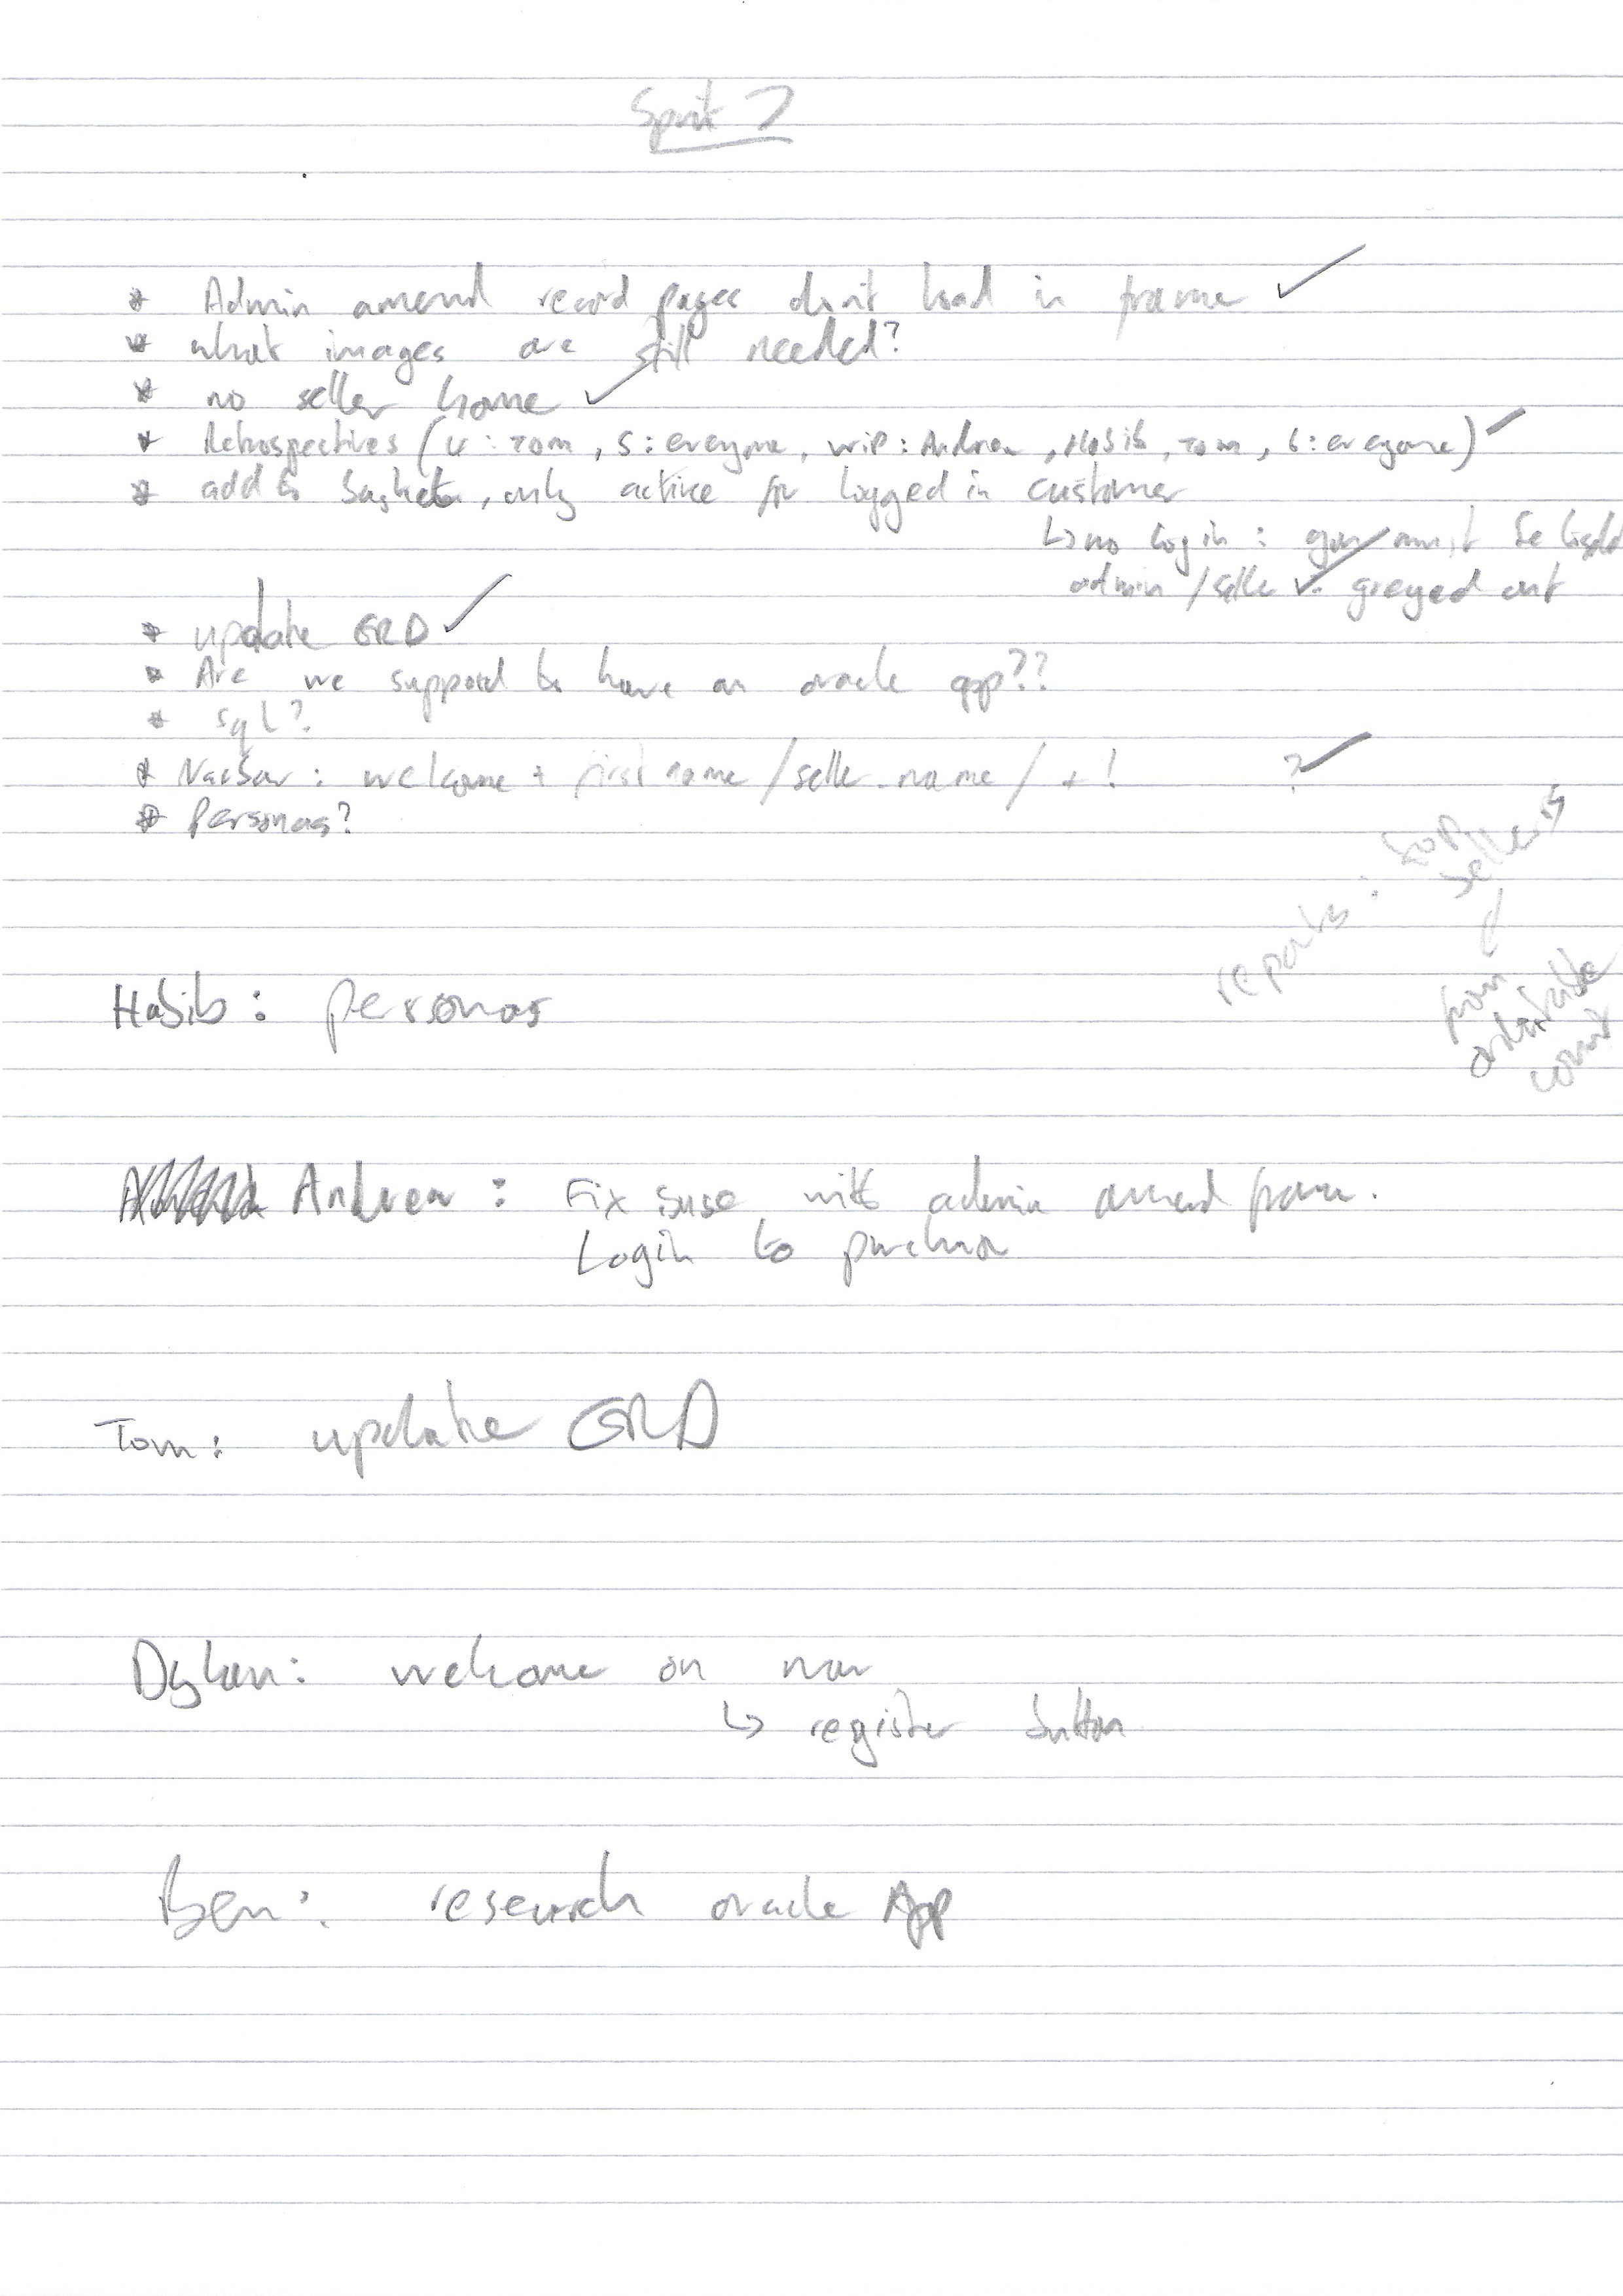 Sprint 7
* Admin amend record pages don't load in frame ✓
* what images are still needed?
* no seller home ✓
* Retrospectives (4: Tom, 5: everyone, WIP: Andrew, Habib, Tom, 6: everyone) ✓
* add to basket, only active for logged in customer
↳ no login: you must be
admin / seller ✓ greyed out
* update ERD ✓
* Are we supposed to have an oracle app??
* sql?
* Navbar: welcome + first name / seller_name / + ! ? ✓
* Personas?
reports: top sellers
from
Habib: personas
Andrew: Fix issue with admin amend frame.
Login to purchase
Tom: update ERD
Dylan: welcome on nav
↳ register button
Ben: research oracle App